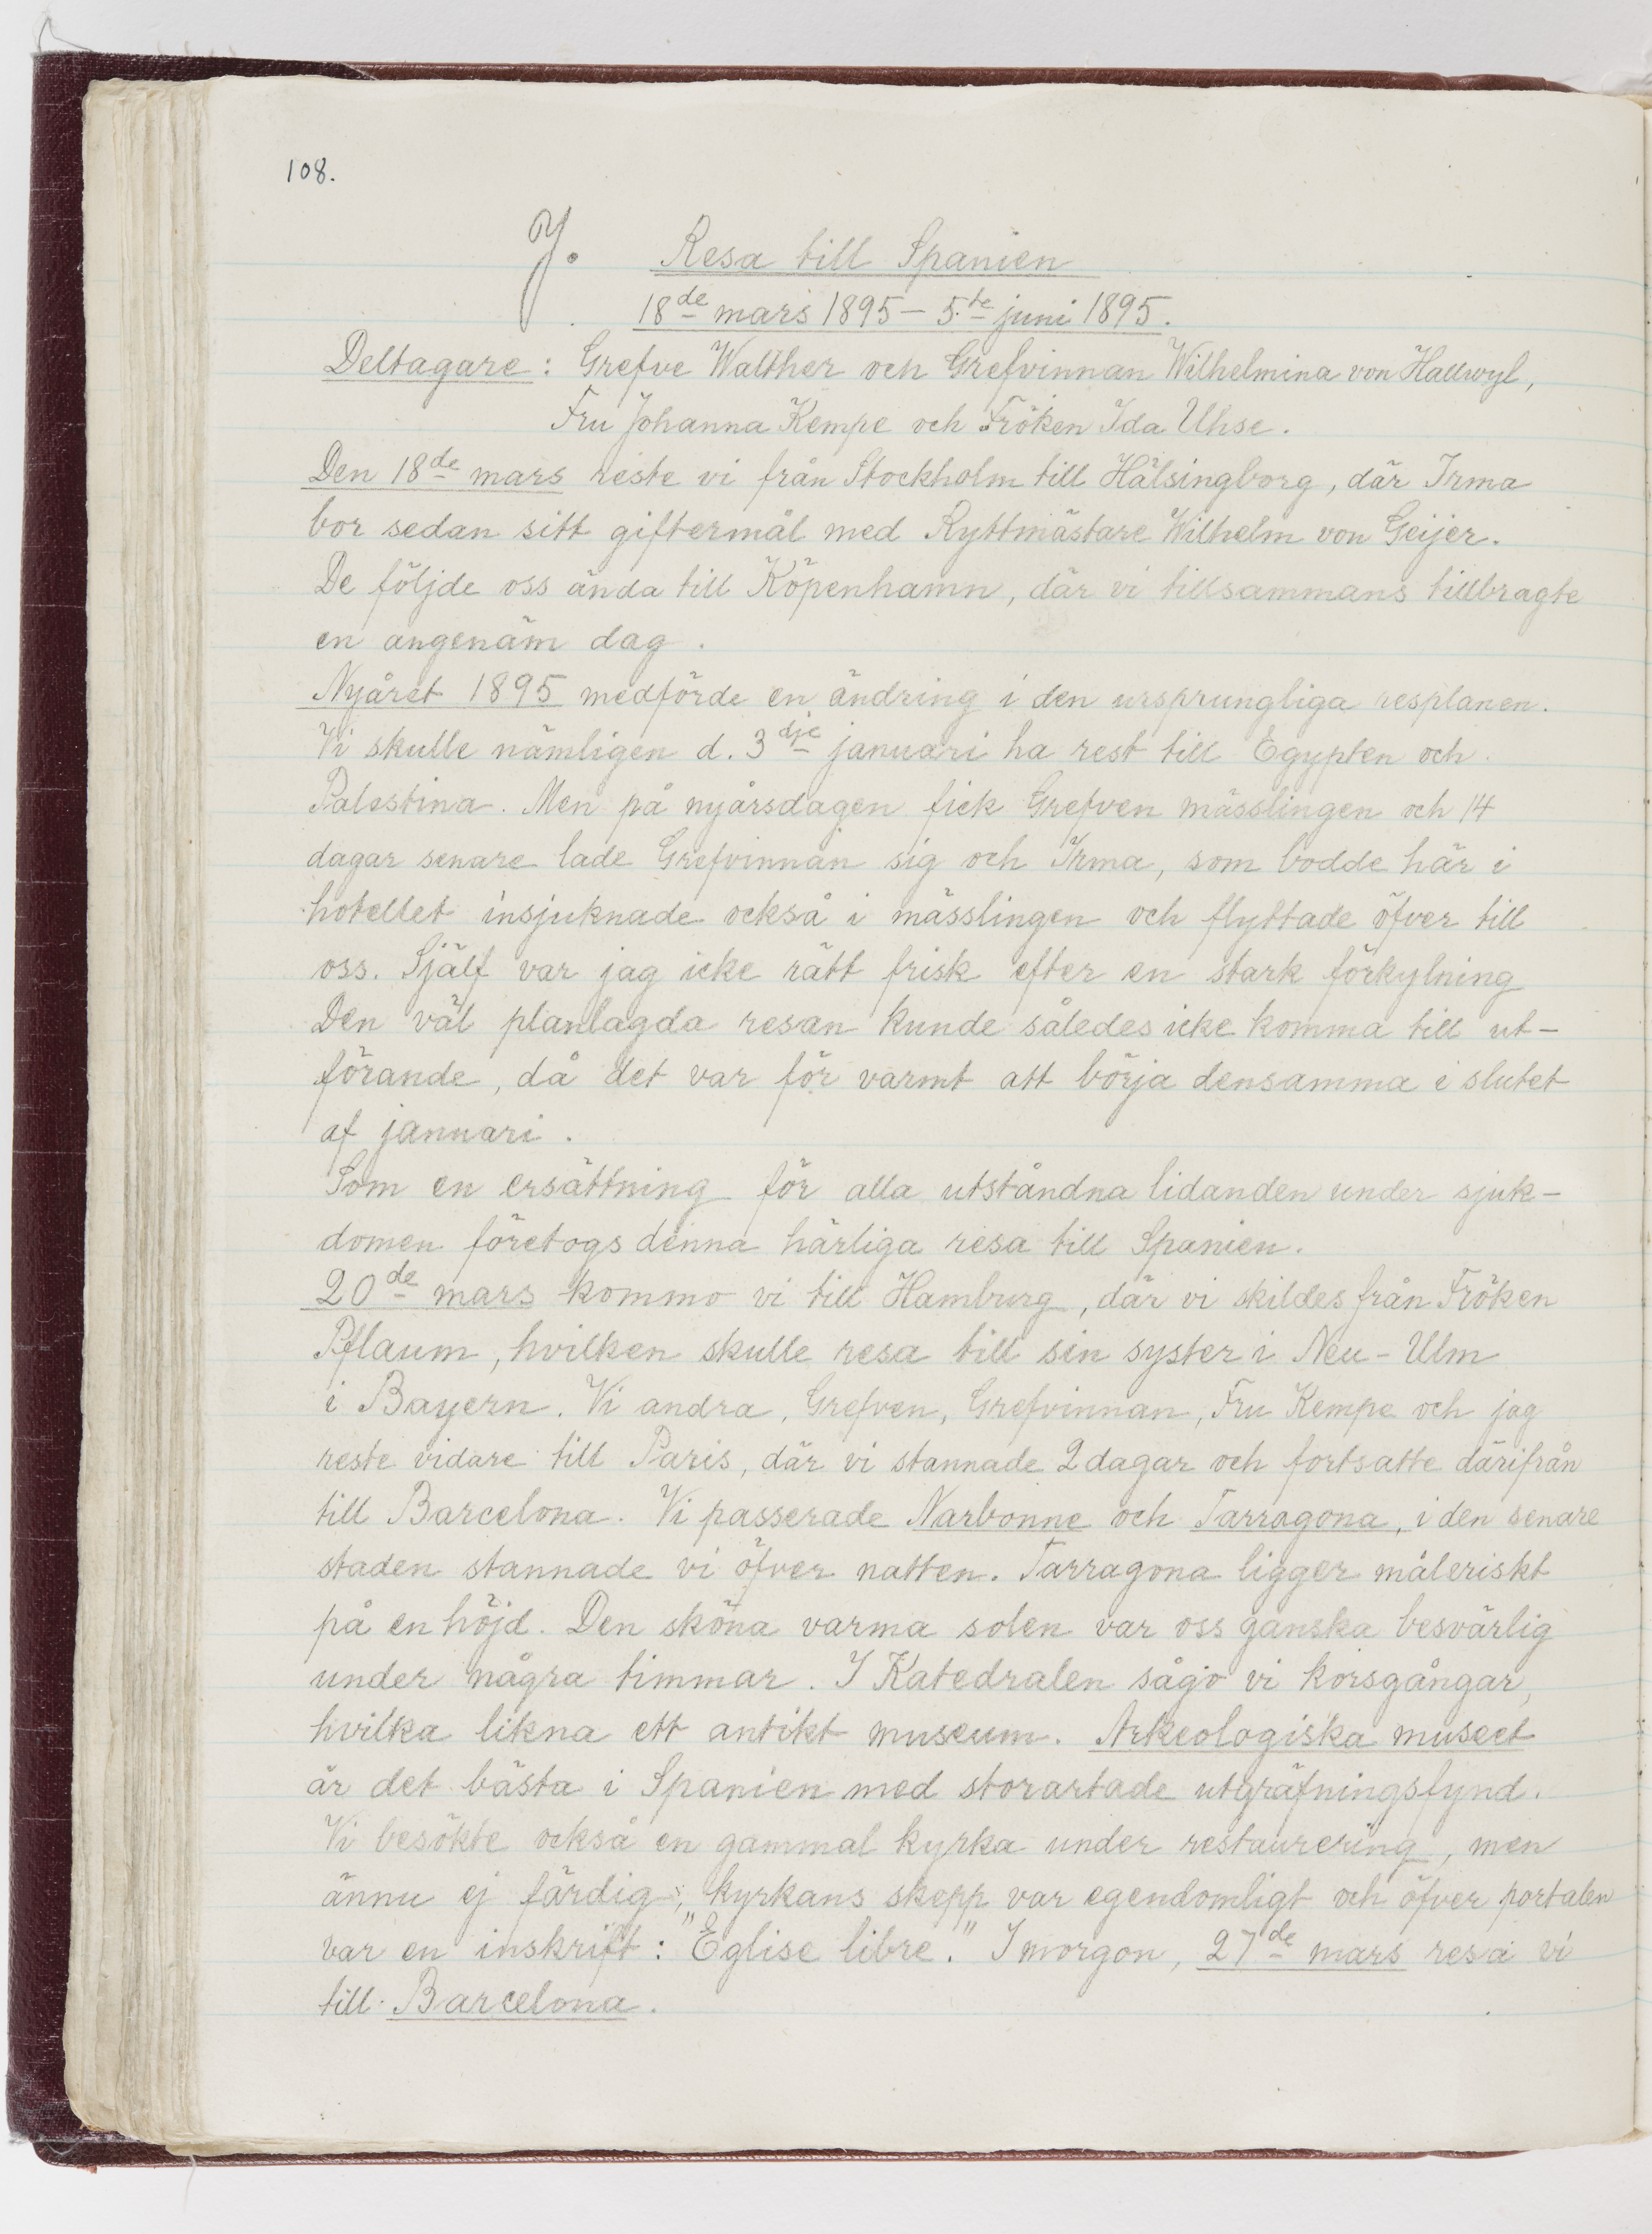 108.
J. Resa till Spanien
18de mars 1895 – 5.te juni 1895.
Deltagare: Grefve Walther och Grefvinnan Wilhelmina von Hallwyl,
Fru Johanna Kempe och Fröken Ida Uhse.
Den 18de mars reste vi från Stockholm till Hälsingborg, där Irma
bor sedan sitt giftermål med Ryttmästare Wilhelm von Geijer.
De följde oss ända till Köpenhamn, där vi tillsammans tillbragte
en angenäm dag.
Nyåret 1895 medförde en ändring i den ursprungliga resplanen.
Vi skulle nämligen d. 3dje januari ha rest till Egypten och
Palestina. Men på nyårsdagen fick Grefven mässlingen och 14
dagar senare lade Grefvinnan sig och Irma, som bodde här i
hotellet insjuknade också i mässlingen och flyttade öfver till
oss. Själf var jag icke rätt frisk efter en stark förkylning
Den väl planlagda resan kunde således icke komma till ut-
förande, då det var för varmt att börja densamma i slutet
af januari.
Som en ersättning för alla utståndna lidanden under sjuk-
domen företogs denna härliga resa till Spanien.
20de mars kommo vi till Hamburg, där vi skildes från Fröken
Pflaum, hvilken skulle resa till sin syster i Neu-Ulm
i Bayern. Vi andra, Grefven, Grefvinnan, Fru Kempe och jag
reste vidare till Paris, där vi stannade 2 dagar och fortsatte därifrån
till Barcelona. Vi passerade Narbonne och Tarragona, i den senare
staden stannade vi öfver natten. Tarragona ligger måleriskt
på en höjd. Den sköna varma solen var oss ganska besvärlig
under några timmar. I Katedralen sågo vi korsgångar,
hvilka likna ett antikt museum. Arkeologiska museet
är det bästa i Spanien med storartade utgräfningsfynd.
Vi besökte också en gammal kyrka under restaurering, men
ännu ej färdig; kyrkans skepp var egendomligt och öfver portalen
var en inskrift: "Eglise libre." I morgon, 27de mars resa vi
till Barcelona.